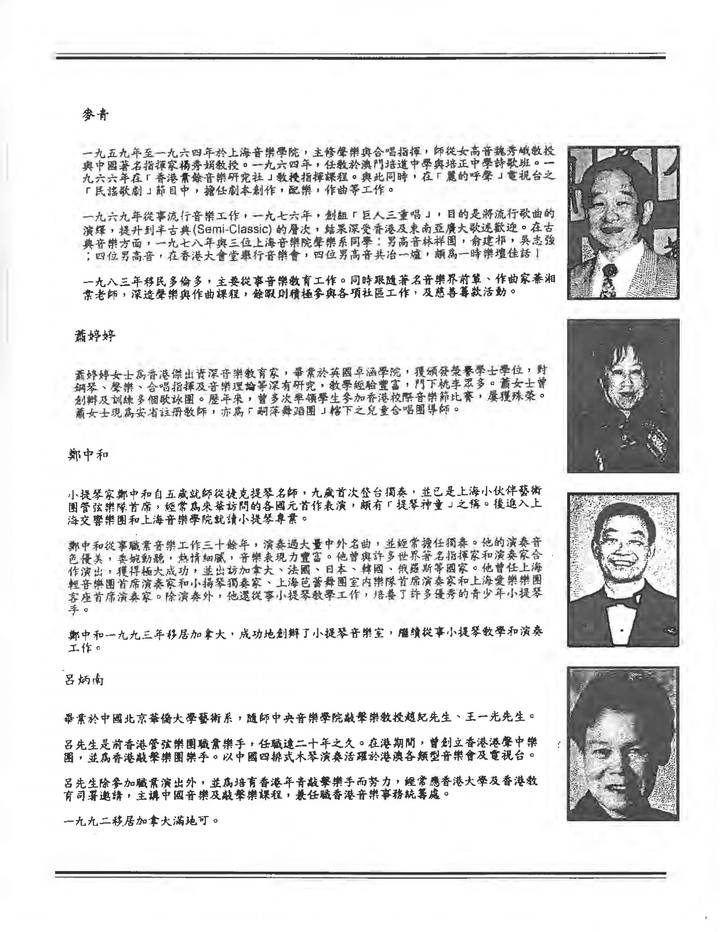 麥青
一九五九年至一九六四年於上海音樂學院，主修聲樂與合唱指揮，師從女高音魏秀峨教授
與中國著名指揮家楊秀娟教授。一九六四年，任教於澳門培道中學與培正中學詩歌班。一
九六六年在「香港業餘音樂研究社」教授指揮課程。與此同時，在「麗的呼聲」電視台之
「民謠歌劇」節目中，擔任劇本創作，配樂，作曲等工作。
一九六九年從事流行音樂工作，一九七六年，創組「巨人三重唱」，目的是將流行歌曲的
演繹，提升到半古典(Semi-Classic) 的層次，結果深受香港及東南亞廣大歌迷歡迎。在古
典音樂方面，一九七八年與三位上海音樂院聲樂系同學：男高音林祥園，俞建相，吳志強
；四位男高音，在香港大會堂舉行音樂會，四位男高音共冶一爐，頗為一時樂壇佳話！
一九八三年移民多倫多，主要從事音樂教育工作。同時跟隨著名音樂界前輩、作曲家蕃湘
棠老師，深造聲樂與作曲課程，餘暇則積極參與各項社區工作，及慈善籌款活動。
蕭婷婷
蕭婷婷女士為香港傑出資深音樂教育家，畢業於英國卓涵學院，獲頒發榮譽學士學位，對
鋼琴、聲樂、合唱指揮及音樂理論等深有研究，教學經驗豐富，門下桃李眾多。蕭女士曾
創辦及訓練多個歌詠團。歷年來，曾多次率領學生參加香港校際音樂節比賽，屢獲殊榮。
蕭女士現為安省註冊教師，亦為「嗣萍舞蹈團」轄下之兒童合唱團導師。
鄭中和
小提琴家鄭中和自五歲就師從捷克提琴名師，九歲首次登台獨奏，並已是上海小伙伴藝術
團管弦樂隊首席，經常為來華訪問的各國元首作表演，頗有「提琴神童」之稱。後進入上
海交響樂團和上海音樂學院就讀小提琴專業。
鄭中和從事職業音樂工作三十餘年，演奏過大量中外名曲，並經常擔任獨奏。他的演奏音
色優美，委婉動聽，熱情細膩，音樂表現力豐富。他曾與許多世界著名指揮家和演奏家合
作演出，獲得極大成功，並出訪加拿大、法國、日本、韓國、俄羅斯等國家。他曾任上海
輕音樂團首席演奏家和小提琴獨奏家、上海芭蕾舞團室內樂隊首席演奏家和上海愛樂樂團
客座首席演奏家。除演奏外，他還從事小提琴教學工作，培養了許多優秀的青少年小提琴
手。
鄭中和一九九三年移居加拿大，成功地創辦了小提琴音樂室，繼續從事小提琴教學和演奏
工作。
呂炳南
畢業於中國北京華僑大學藝術系，隨師中央音樂學院敲擊樂教授趙紀先生、王一光先生。
呂先生是前香港管弦樂團職業樂手，任職達二十年之久。在港期間，曾創立香港港聲中樂
團，並為香港敲擊樂團樂手。以中國四排式木琴演奏活躍於港澳各類型音樂會及電視台。
呂先生除參加職業演出外，並為培育香港年青敲擊樂手而努力，經常應香港大學及香港教
育司署邀請，主講中國音樂及敲擊樂課程，兼任職香港音樂事務統籌處。
一九九二移居加拿大滿地可。